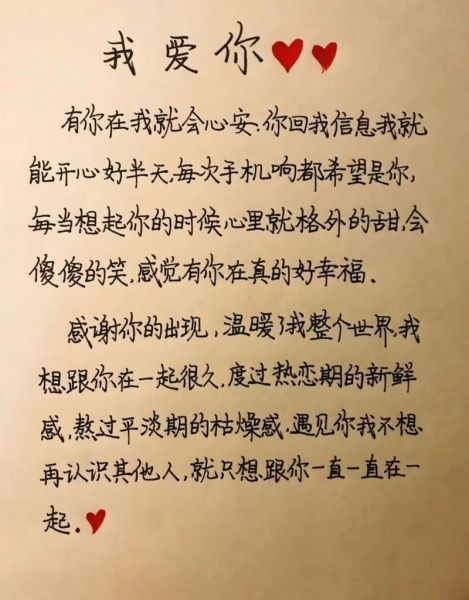 我爱你
有你在我就会心安.你回我信息我就
能开心好半天,每次手机响都希望是你,
每当想起你的时候心里就格外的甜,会
傻傻的笑,感觉有你在真的好幸福.
感谢你的出现,温暖了我整个世界.我
想跟你在一起很久.度过热恋期的新鲜
感,熬过平淡期的枯燥感.遇见你我不想
再认识其他人,就只想跟你一直一直在一
起.